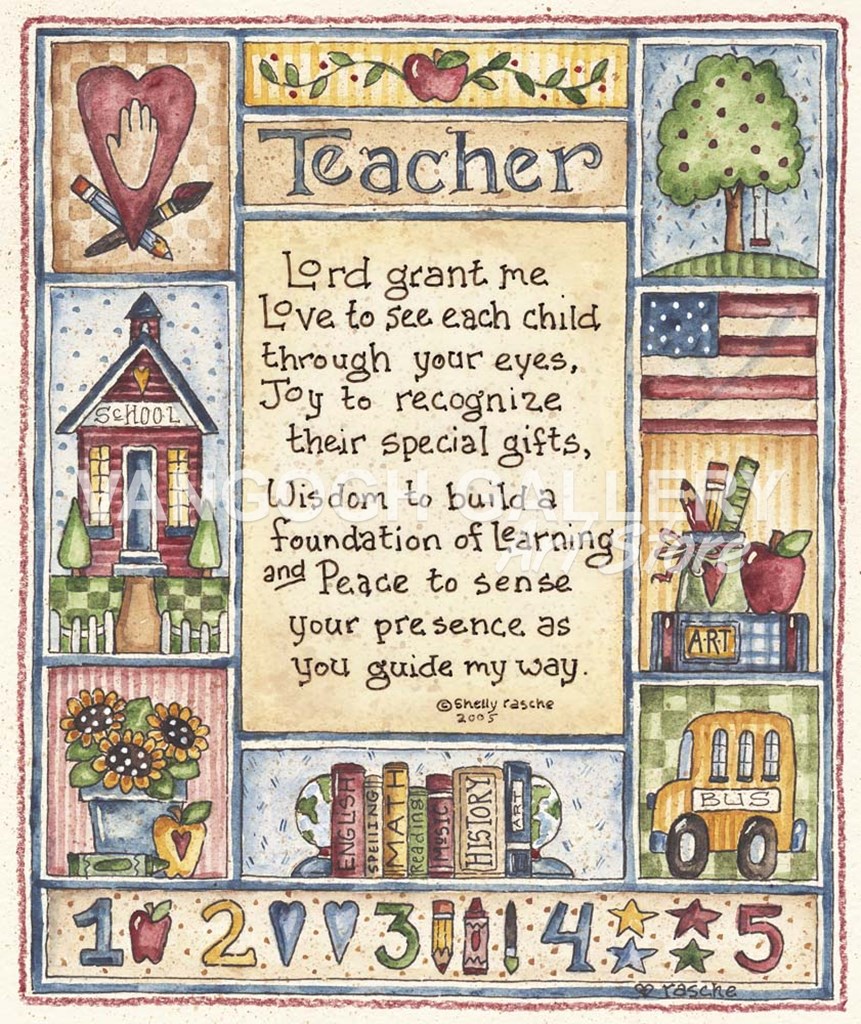 Teacher
Lord grant me
Love to see each child
through your eyes,
Joy to recognize
their special gifts,
Wisdom to build a
foundation of learning
and Peace to sense
your presence as
you guide my way.
©Shelly rasche
2005
SCHOOL
VANGOGH GALLERY
Art Store
ART
ENGLISH
SPELLING
MATH
Reading
MUSIC
HISTORY
ART
BUS
1 2 3 4 5
rasche